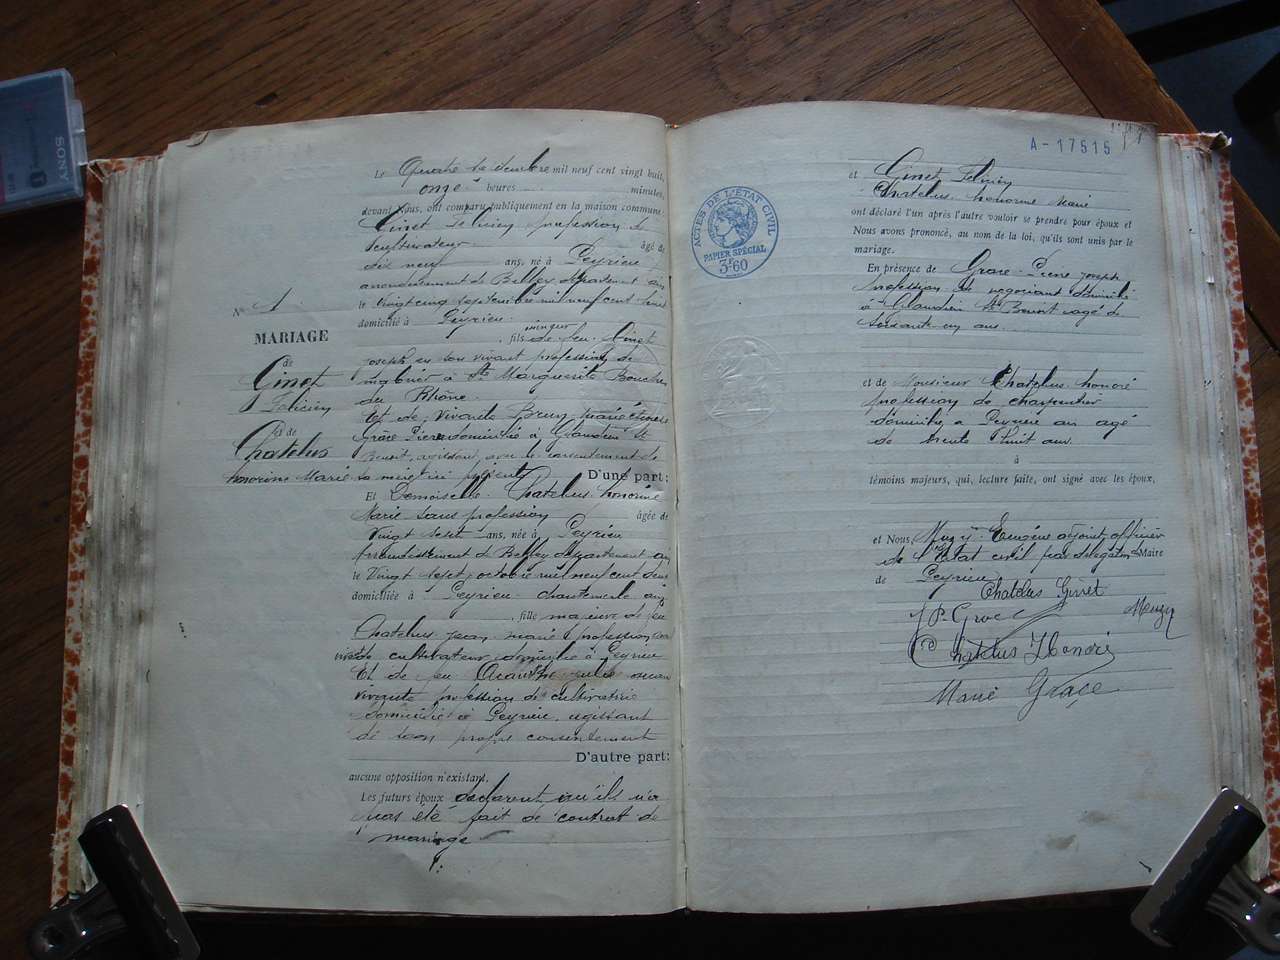 N° 1
MARIAGE
de
Ginet
Felicien
et de
Chatelus
honorine Marie
Le Quatre decembre mil neuf cent vingt huit,
onze heures minutes,
devant Nous, ont comparu publiquement en la maison commune
Ginet Felicien profession de
cultivateur âgé de
dix neuf ans, né à Peyrieu
arrondissement de Belley département ain
le vingt cinq septembre mil neuf cent neuf
domicilié à Peyrieu
mineur
, fils de feu Ginet
joseph en son vivant profession de
à Ste Marguerite Bouches
du Rhône
Et de vivante Brun
Grâce Pierre domiciliée à Glandieu St
Benoit, avec le consentement de
sa mère ici présente D'une part:
Et Demoiselle Chatelus honorine
Marie sans profession âgée de
Vingt sept ans, née à Peyrieu
arrondissement de Belley département ain
le Vingt sept octobre mil neuf cent
domiciliée à Peyrieu ain
, fille majeure de feu
Chatelus jean marie profession
de cultivateur domicilié à Peyrieu
Et de feu julie
vivante profession de cultivatrice
domiciliée à Peyrieu, agissant
de son propre consentement
D'autre part:
aucune opposition n'existant.
Les futurs époux declarent qu'ils n'a
pas été fait de contrat de
mariage
A-17515
ACTES DE L'ETAT CIVIL
PAPIER SPÉCIAL
3F60
et Ginet Felicien
Chatelus honorine Marie
ont déclaré l'un après l'autre vouloir se prendre pour époux et
Nous avons prononcé, au nom de la loi, qu'ils sont unis par le
mariage.
En présence de Grace Pierre joseph
profession de negociant domicilié
à Glandieu St Benoit agé de
soixante un ans
et de Monsieur Chatelus honoré
profession de charpentier
domicilié a Peyrieu ain agé
de trente huit ans
à
témoins majeurs, qui, lecture faite, ont signé avec les époux,
et Nous, Eugène adjoint officier
de l'Etat civil par délégation Maire
de Peyrieu
Chatelus Ginet
JP. Grace
Chatelus Honoré
Marie Grace